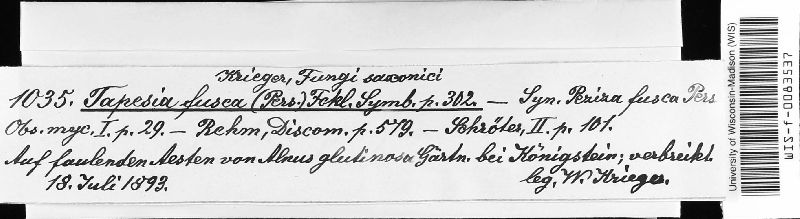 Krieger, Fungi saxonici
1035. Tapesia fusca (Pers.) Fckl. Symb. p. 302. — Syn. Peziza fusca Pers.
Obs. myc. I. p. 29. — Rehm, Discom. p. 579. — Schröter, II. p. 101.
Auf faulenden Aesten von Alnus glutinosa Gärtn. bei Königstein; verbreitet.
18. Juli 1893.
leg. W. Krieger.
University of Wisconsin-Madison (WIS)
WIS-f-0083537